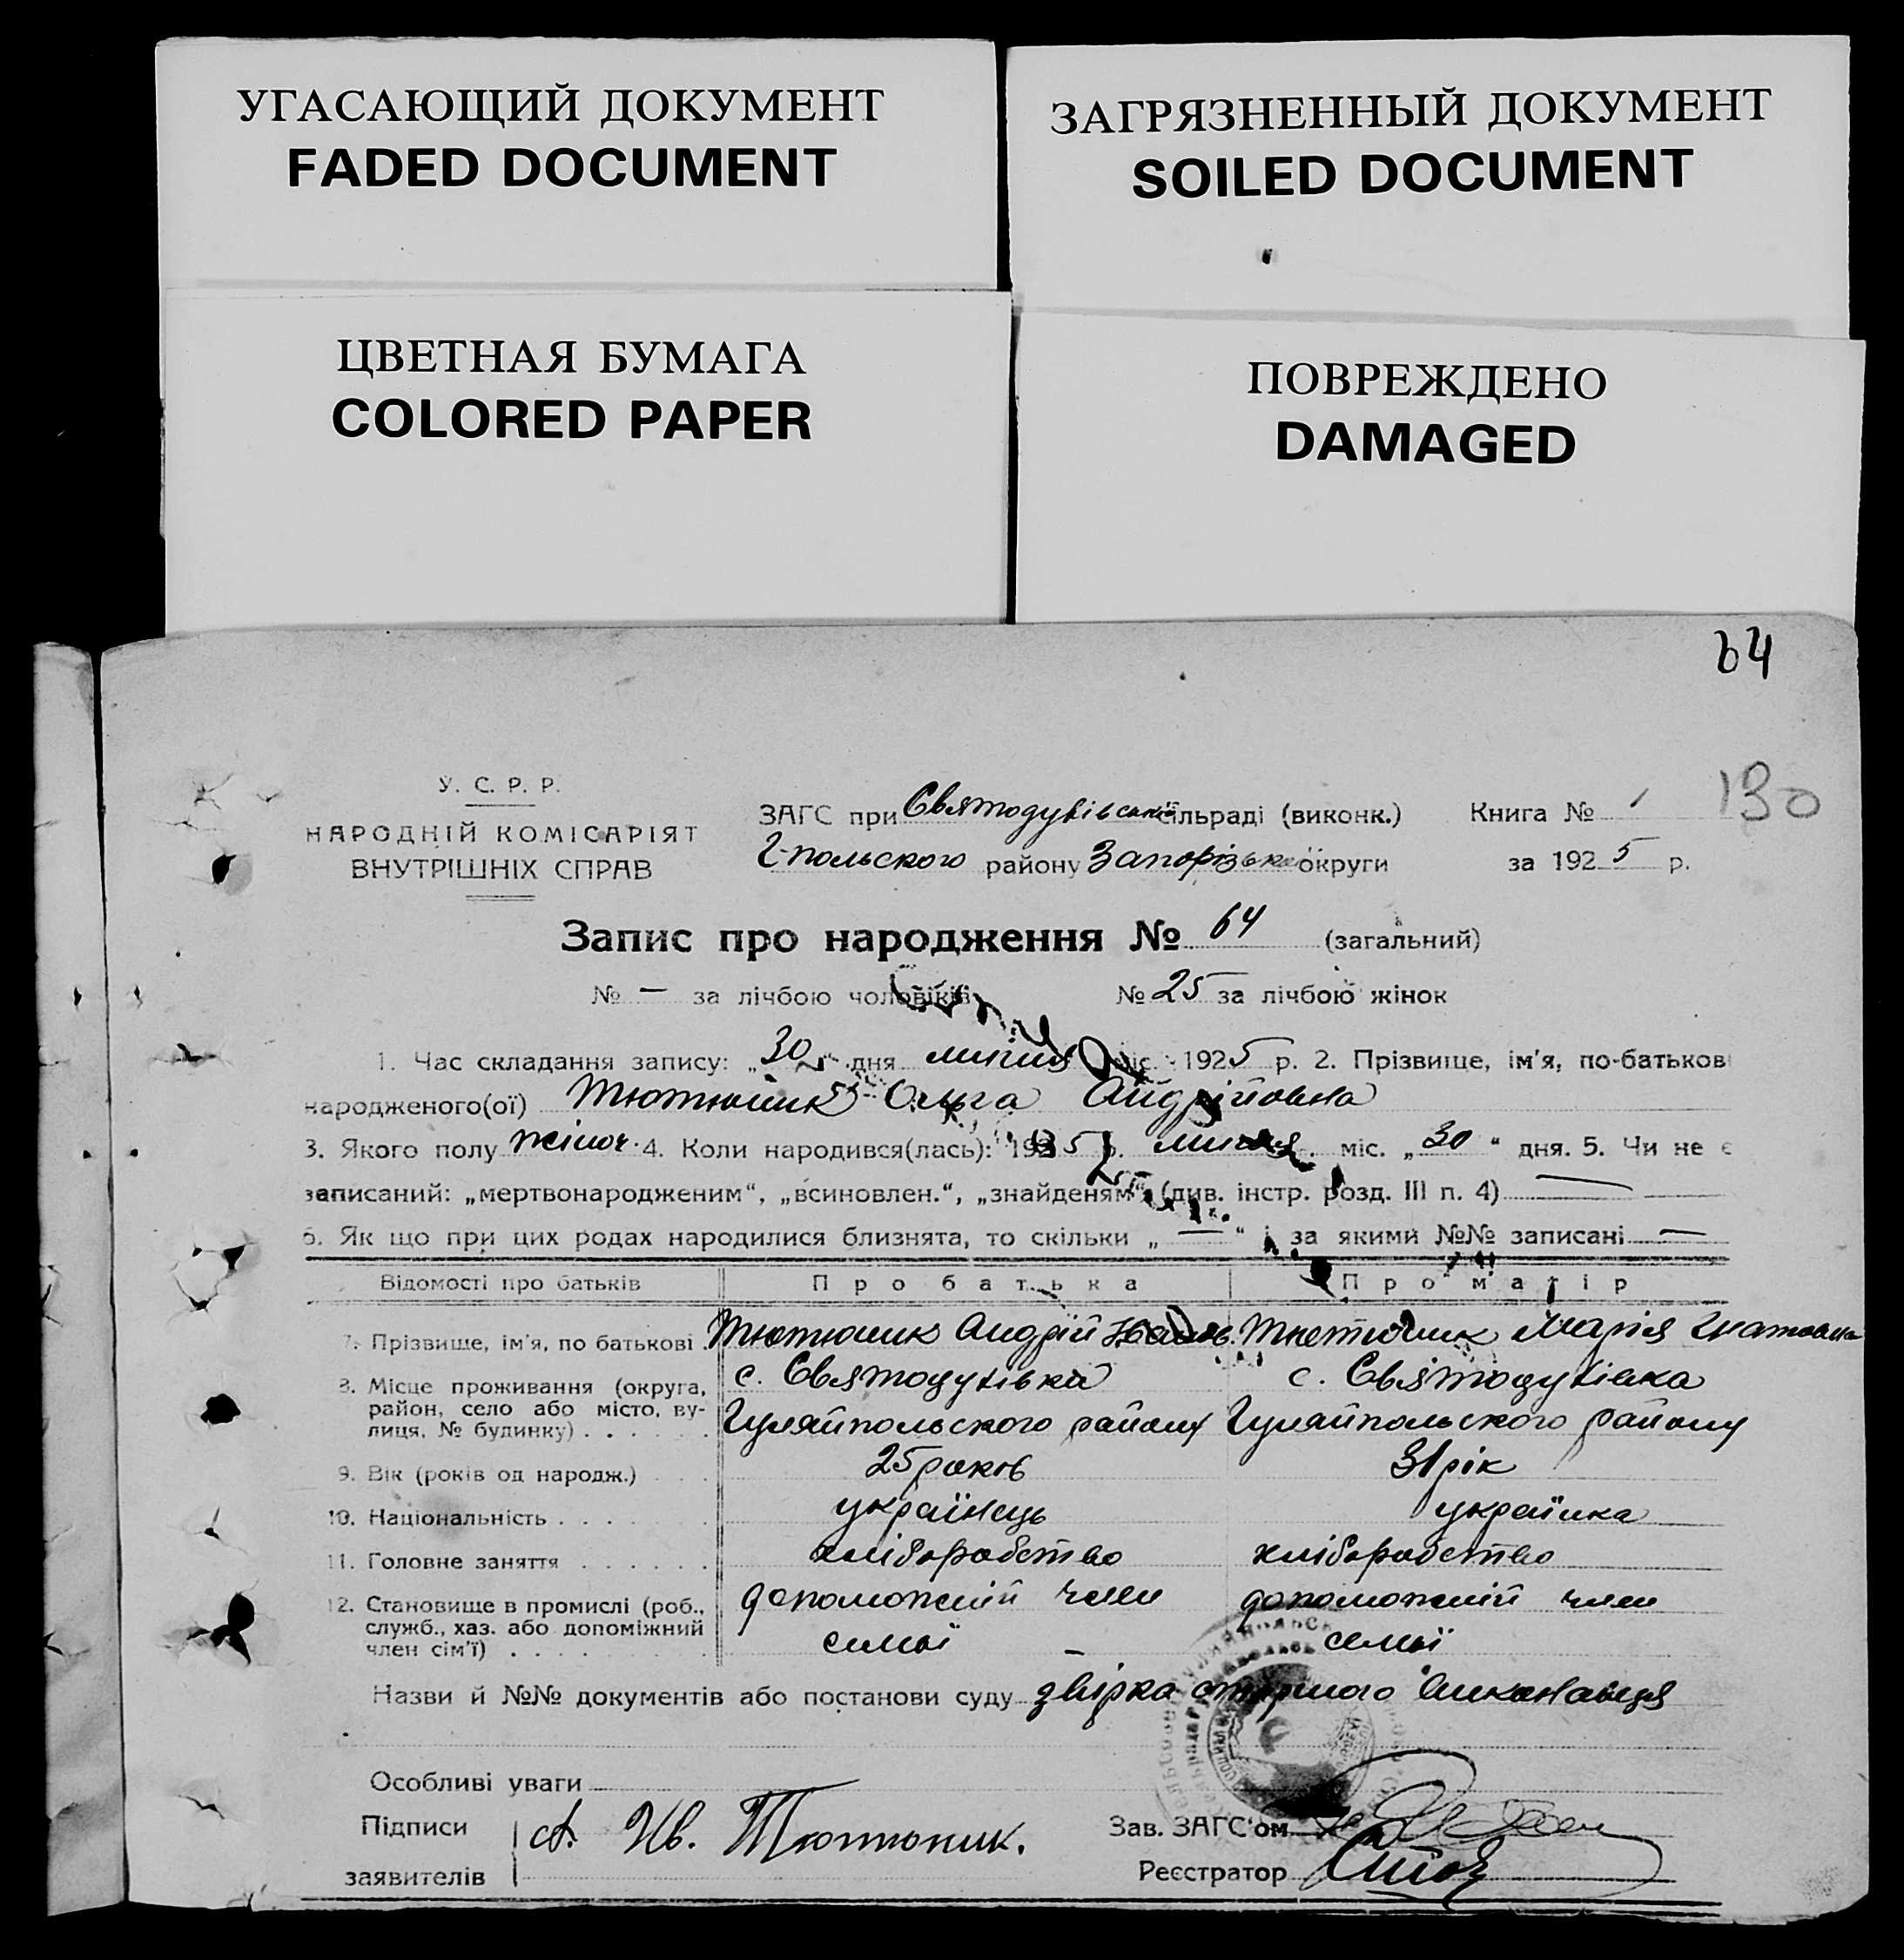 УГАСАЮЩИЙ ДОКУМЕНТ
FADED DOCUMENT
ЗАГРЯЗНЕННЫЙ ДОКУМЕНТ
SOILED DOCUMENT
ЦВЕТНАЯ БУМАГА
COLORED PAPER
ПОВРЕЖДЕНО
DAMAGED
64
130
У. С. Р. Р.
НАРОДНІЙ КОМІСАРІЯТ
ВНУТРІШНІХ СПРАВ
ЗАГС при Святодухівській сільраді (виконк.) Книга № 1
Г-польского району Запорізької округи за 1925 р.
Запис про народження № 64 (загальний)
№ — за лічбою чоловіків № 25 за лічбою жінок
1. Час складання запису: „30" дня липня міс. 1925 р. 2. Прізвище, ім'я, по-батькові
народженого(ої) Тютюнник Ольга Андрійовна
3. Якого полу жіноч. 4. Коли народився(лась): 1925 р. липня міс. „30" дня. 5. Чи не є
записаний: „мертвонародженим", „всиновлен.", „знайденям" (див. інстр. розд. III п. 4) —
6. Як що при цих родах народилися близнята, то скільки „ — " і за якими №№ записані —
Відомості про батьків Про батька Про матір
7. Прізвище, ім'я, по батькові . Тютюник Андрій Іванов. Тютюник Марія Игнатовна
8. Місце проживання (округа, район, село або місто, вулиця, № будинку) . . . . . . с. Святодухівка Гуляйпольского району с. Святодухівка Гуляйпольского району
9. Вік (років од народж.) . . . 25 роков 31 рік
10. Національність . . . . . . українець українка
11. Головне заняття . . . . . . хліборобство хліборобство
12. Становище в промислі (роб., служб., хаз. або допоміжний член сім'ї) . . . . . . . . допоможний член семьї — допоможний член семьї
Назви й №№ документів або постанови суду звірка
Особливі уваги
Підписи
заявителів
А. Ив. Тютюник.
Зав. ЗАГС'ом
Реєстратор